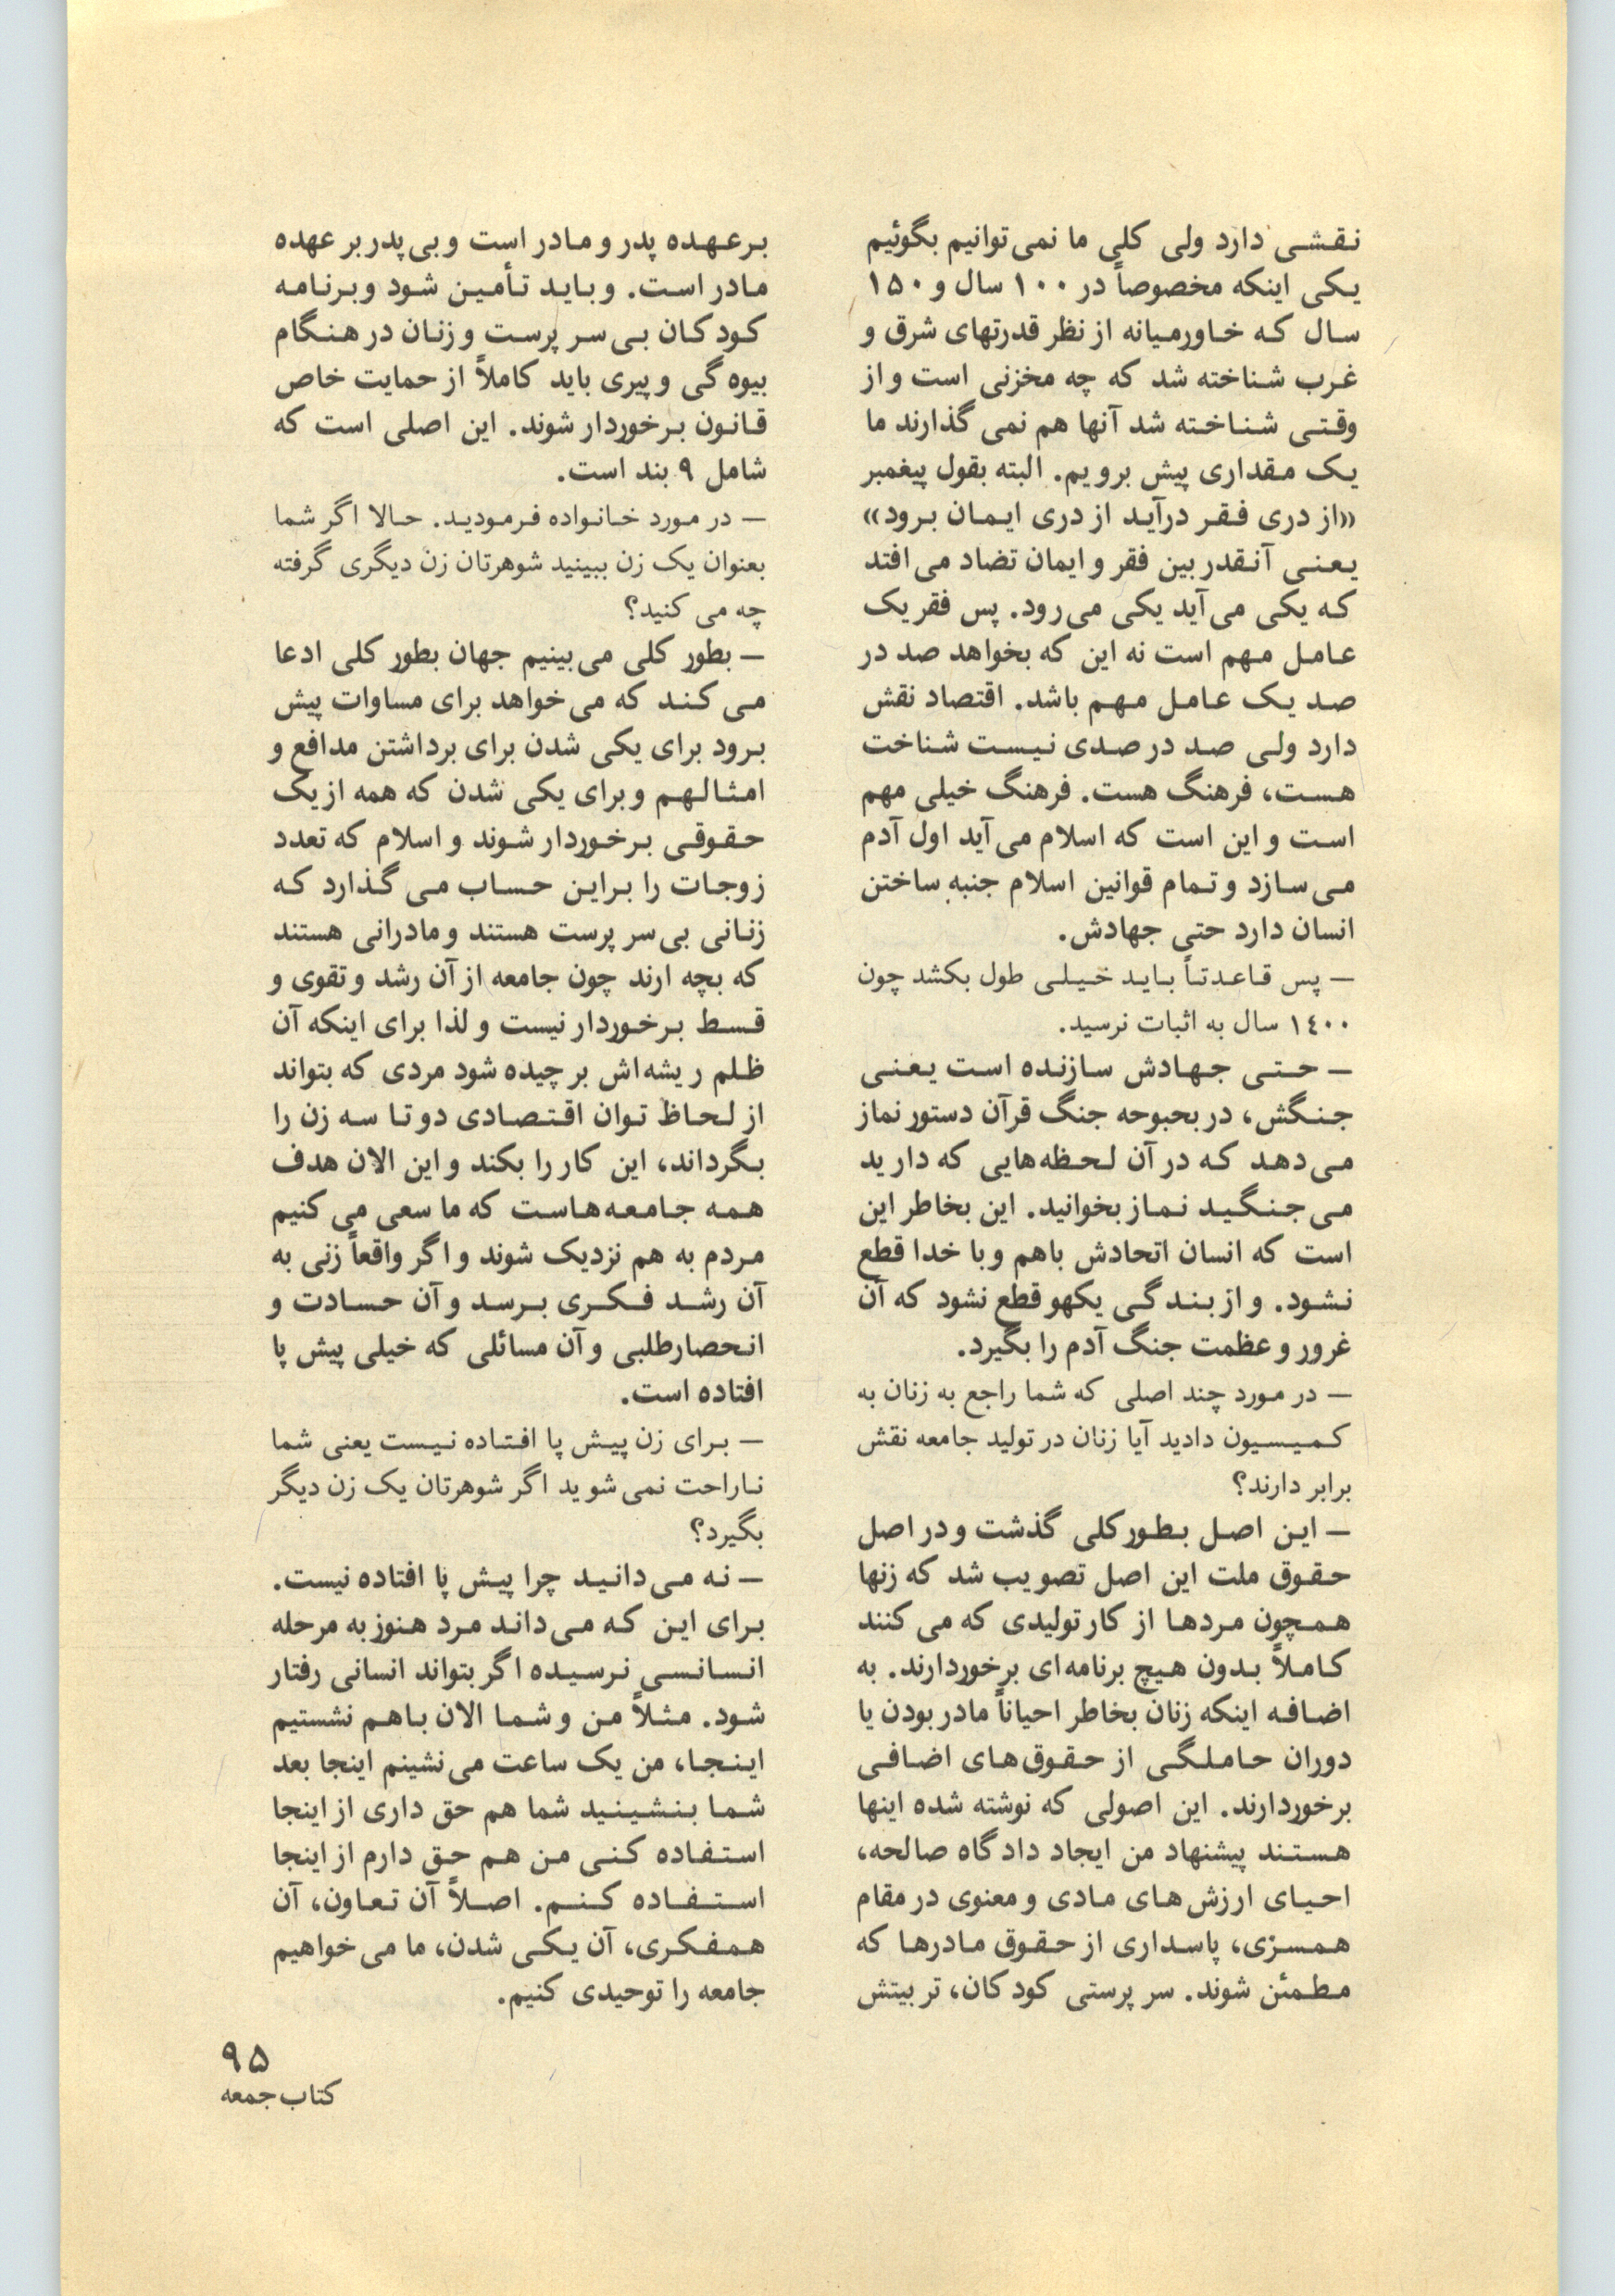 نقشی دارد ولی کلی ما نمی‌توانیم بگوئیم
یکی اینکه مخصوصاً در ۱۰۰ سال و ۱۵۰
سال که خاورمیانه از نظر قدرتهای شرق و
غرب شناخته شد که چه مخزنی است و از
وقتی شناخته شد آنها هم نمی گذارند ما
یک مقداری پیش برویم. البته بقول پیغمبر
«از دری فقر درآید از دری ایمان برود»
یعنی آنقدر بین فقر و ایمان تضاد می‌افتد
که یکی می‌آید یکی می‌رود. پس فقر یک
عامل مهم است نه این که بخواهد صد در
صد یک عامل مهم باشد. اقتصاد نقش
دارد ولی صد در صدی نیست شناخت
هست، فرهنگ هست. فرهنگ خیلی مهم
است و این است که اسلام می‌آید اول آدم
می‌سازد و تمام قوانین اسلام جنبه ساختن
انسان دارد حتی جهادش.
— پس قاعدتاً باید خیلی طول بکشد چون
۱۴۰۰ سال به اثبات نرسید.
— حتی جهادش سازنده است یعنی
جنگش، در بحبوحه جنگ قرآن دستور نماز
می‌دهد که در آن لحظه‌هایی که دارید
می‌جنگید نماز بخوانید. این بخاطر این
است که انسان اتحادش باهم و با خدا قطع
نشود. و از بندگی یکهو قطع نشود که آن
غرور و عظمت جنگ آدم را بگیرد.
— در مورد چند اصلی که شما راجع به زنان به
کمیسیون دادید آیا زنان در تولید جامعه نقش
برابر دارند؟
— این اصل بطورکلی گذشت و در اصل
حقوق ملت این اصل تصویب شد که زنها
همچون مردها از کار تولیدی که می کنند
کاملاً بدون هیچ برنامه‌ای برخوردارند. به
اضافه اینکه زنان بخاطر احیاناً مادر بودن یا
دوران حاملگی از حقوق‌های اضافی
برخوردارند. این اصولی که نوشته شده اینها
هستند پیشنهاد من ایجاد دادگاه صالحه،
احیای ارزش‌های مادی و معنوی در مقام
همسری، پاسداری از حقوق مادرها که
مطمئن شوند. سرپرستی کودکان، تربیتش
برعهده پدر و مادر است و بی‌پدر بر عهده
مادر است. و باید تأمین شود و برنامه
کودکان بی‌سرپرست و زنان در هنگام
بیوه گی و پیری باید کاملاً از حمایت خاص
قانون برخوردار شوند. این اصلی است که
شامل ۹ بند است.
— در مورد خانواده فرمودید. حالا اگر شما
بعنوان یک زن ببینید شوهرتان زن دیگری گرفته
چه می کنید؟
— بطور کلی می‌بینیم جهان بطور کلی ادعا
می‌کند که می‌خواهد برای مساوات پیش
برود برای یکی شدن برای برداشتن مدافع و
امثالهم و برای یکی شدن که همه از یک
حقوقی برخوردار شوند و اسلام که تعدد
زوجات را براین حساب می گذارد که
زنانی بی‌سرپرست هستند و مادرانی هستند
که بچه ارند چون جامعه از آن رشد و تقوی و
قسط برخوردار نیست و لذا برای اینکه آن
ظلم ریشه‌اش برچیده شود مردی که بتواند
از لحاظ توان اقتصادی دو تا سه زن را
بگرداند، این کار را بکند و این الان هدف
همه جامعه‌هاست که ما سعی می کنیم
مردم به هم نزدیک شوند و اگر واقعاً زنی به
آن رشد فکری برسد و آن حسادت و
انحصارطلبی و آن مسائلی که خیلی پیش پا
افتاده است.
— برای زن پیش پا افتاده نیست یعنی شما
ناراحت نمی‌شوید اگر شوهرتان یک زن دیگر
بگیرد؟
— نه می‌دانید چرا پیش پا افتاده نیست.
برای این که می‌داند مرد هنوز به مرحله
انسانسی نرسیده اگر بتواند انسانی رفتار
شود. مثلاً من و شما الان باهم نشستیم
اینجا، من یک ساعت می‌نشینم اینجا بعد
شما بنشینید شما هم حق داری از اینجا
استفاده کنی من هم حق دارم از اینجا
استفاده کنم. اصلاً آن تعاون، آن
همفکری، آن یکی شدن، ما می‌خواهیم
جامعه را توحیدی کنیم.
۹۵
کتاب جمعه